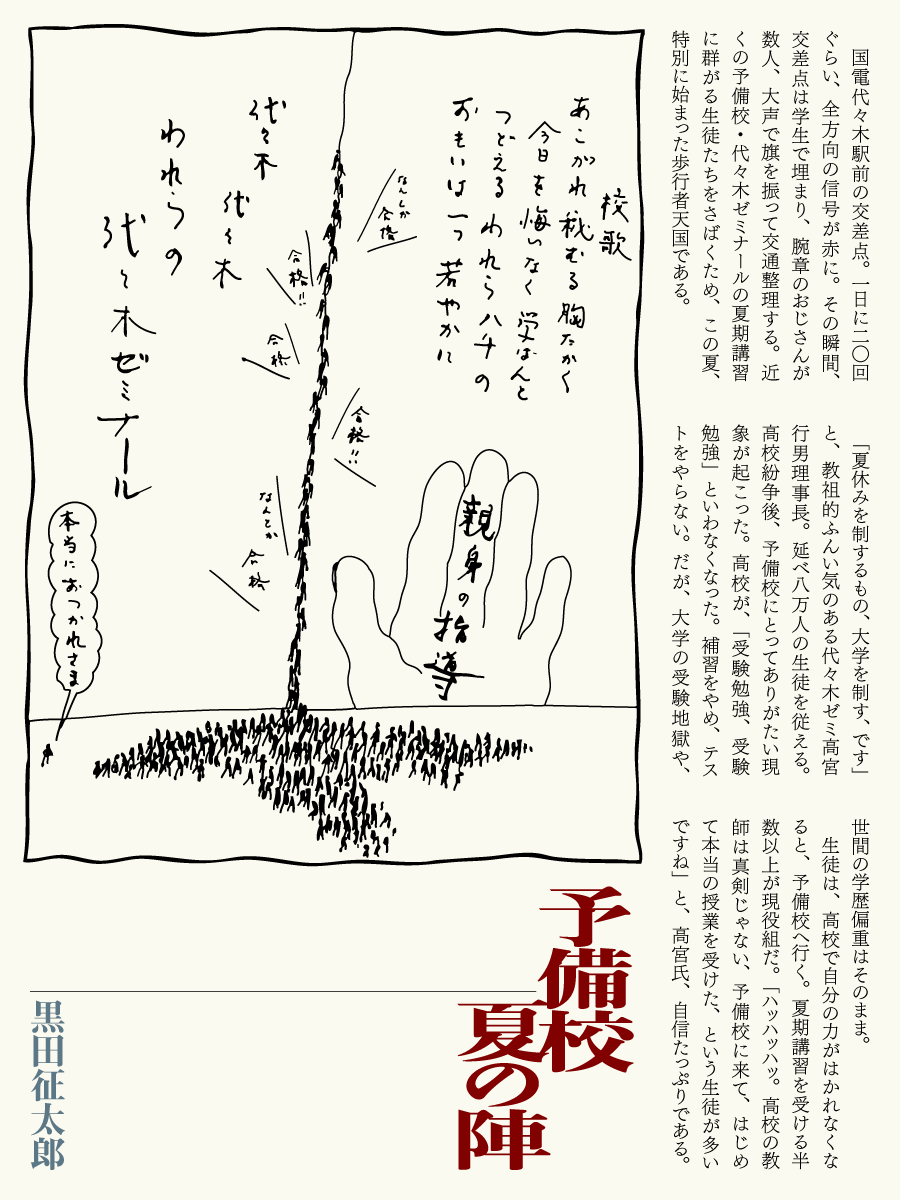 国電代々木駅前の交差点。一日に二〇回
ぐらい、全方向の信号が赤に。その瞬間、
交差点は学生で埋まり、腕章のおじさんが
数人、大声で旗を振って交通整理する。近
くの予備校・代々木ゼミナールの夏期講習
に群がる生徒たちをさばくため、この夏、
特別に始まった歩行者天国である。
「夏休みを制するもの、大学を制す、です」
と、教祖的ふんい気のある代々木ゼミ高宮
行男理事長。延べ八万人の生徒を従える。
高校紛争後、予備校にとってありがたい現
象が起こった。高校が、「受験勉強、受験
勉強」といわなくなった。補習をやめ、テス
トをやらない。だが、大学の受験地獄や、
世間の学歴偏重はそのまま。
生徒は、高校で自分の力がはかれなくな
ると、予備校へ行く。夏期講習を受ける半
数以上が現役組だ。「ハッハッハッ。高校の教
師は真剣じゃない、予備校に来て、はじめ
て本当の授業を受けた、という生徒が多い
ですね」と、高宮氏、自信たっぷりである。
校歌
あこがれ秘むる胸たかく
今日を悔いなく学ばんと
つどえるわれら八千の
おもいは一つ若やかに
代々木
代々木
われらの
代々木ゼミナール
なんしか
合格
合格!!
合格
合格!!
なんとか
合格
親身の指導
本当におつかれさま
予備校
夏の陣
黒田征太郎